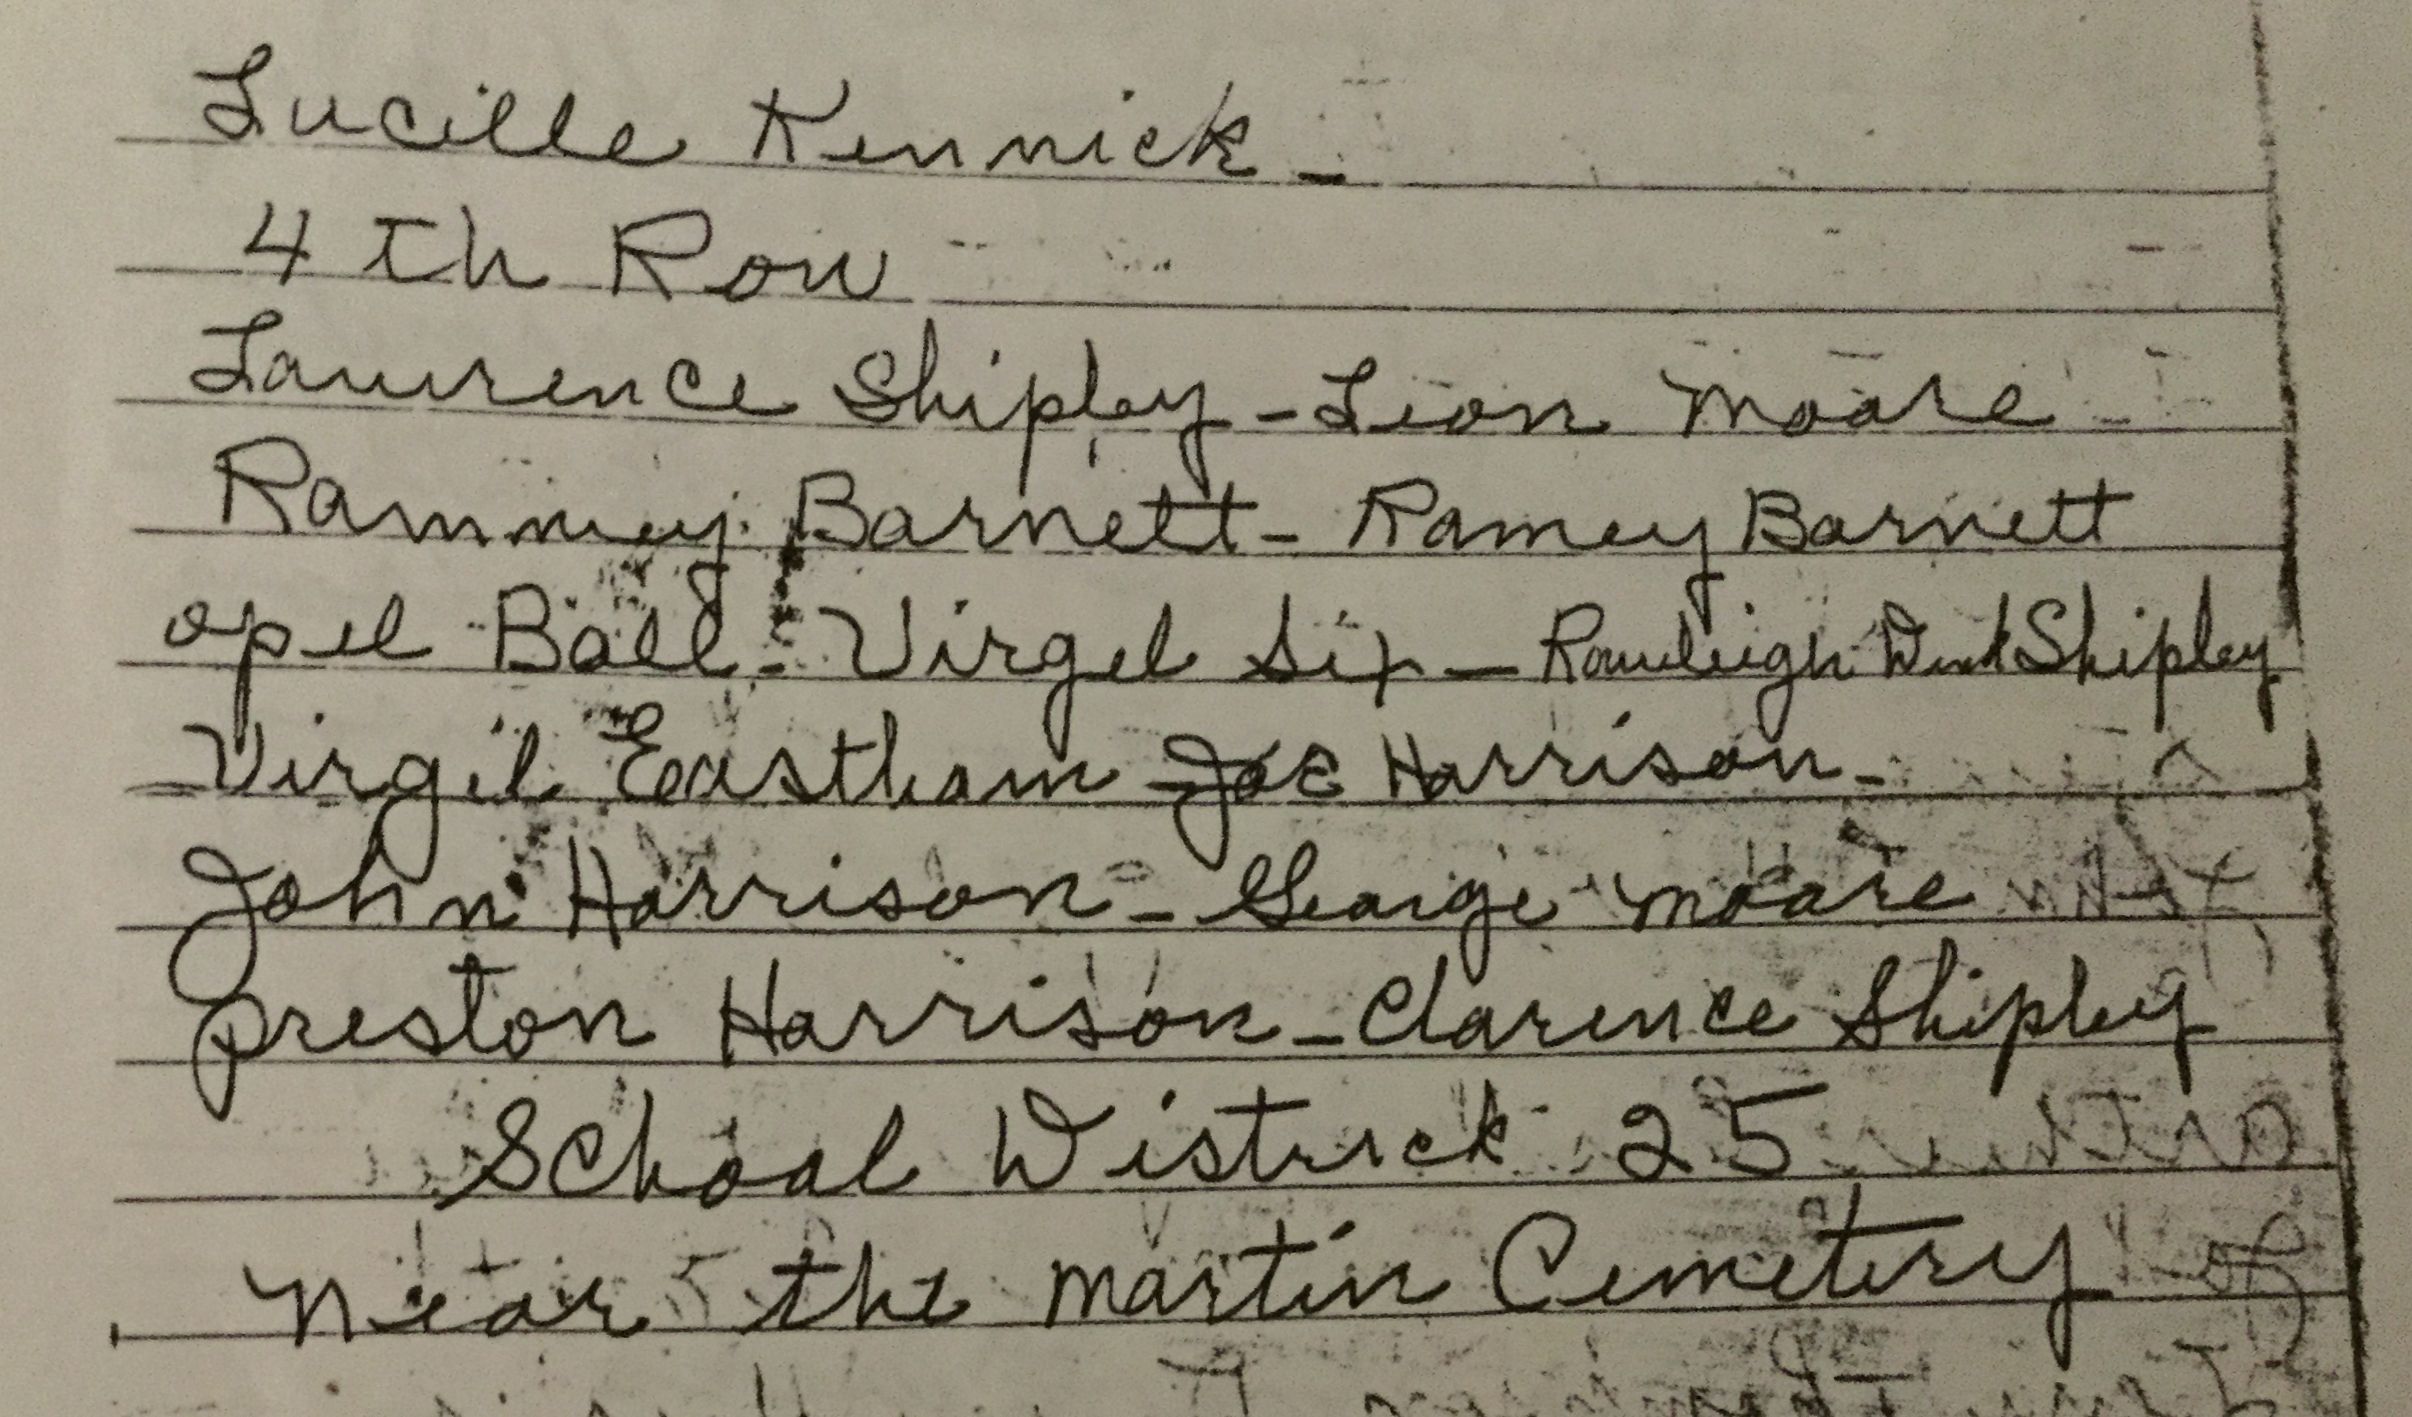 Lucille Kennick -
4 th Row
Lawrence Shipley - Leon Moore -
Rammey Barnett - Ramey Barnett
opel Ball - Virgel Six - Rawleigh Shipley
Virgil Eastham - Joe Harrison -
John Harrison - George Moore
preston Harrison - Clarence Shipley
School Districk 25
Near the Martin Cemetery